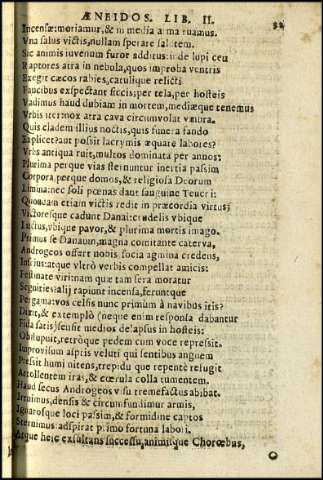 ÆNEIDOS. LIB. II.
Incensæ: moriamur, & in media arma ruamus.
Vna salus victis, nullam sperare salutem.
Sic animis iuvenum furor additus: inde lupi ceu
Raptores atra in nebula, quos improba ventris
Exegit cæcos rabies, catulique relicti
Faucibus exspectant siccis: per tela, per hosteis
Vadimus haud dubiam in mortem, mediæque tenemus
Vrbis iter: nox atra cava circumvolat vmbra.
Quis cladem illius noctis, quis funera fando
Explicet? aut possit lacrymis æquare labores?
Vrbs antiqua ruit, multos dominata per annos:
Plurima perque vias sternuntur inertia passim
Corpora, perque domos, & religiosa Deorum
Limina: nec soli pœnas dant sanguine Teucri:
Quondam etiam victis redit in præcordia virtus;
Victoresque cadunt Danai: crudelis vbique
Luctus, vbique pavor, & plurima mortis imago.
Primus se Danaum, magna comitante caterva,
Androgeos offert nobis, socia agmina credens,
Inscius: atque vltrò verbis compellat amicis:
Festinate viri: nam quæ tam sera moratur
Segnities? alij rapiunt incensa, feruntque
Pergama: vos celsis nunc primùm à navibus itis?
Dixit, & extemplò (neque enim responsa dabantur
Fida satis) sensit medios delapsus in hosteis:
Obstupuit, retròque pedem cum voce repressit.
Improvisum aspris veluti qui sentibus anguem
Pressit humi nitens, trepidusque repentè refugit
Attollentem iras, & cœrula colla tumentem.
Haud secus Androgeos visu tremefactus abibat.
Irruimus, densis & circumfundimur armis,
Ignarosque loci passim, & formidine captos
Sternimus: adspirat primo fortuna labori.
Atque heic exsultans successu, animisque Chorœbus,
O